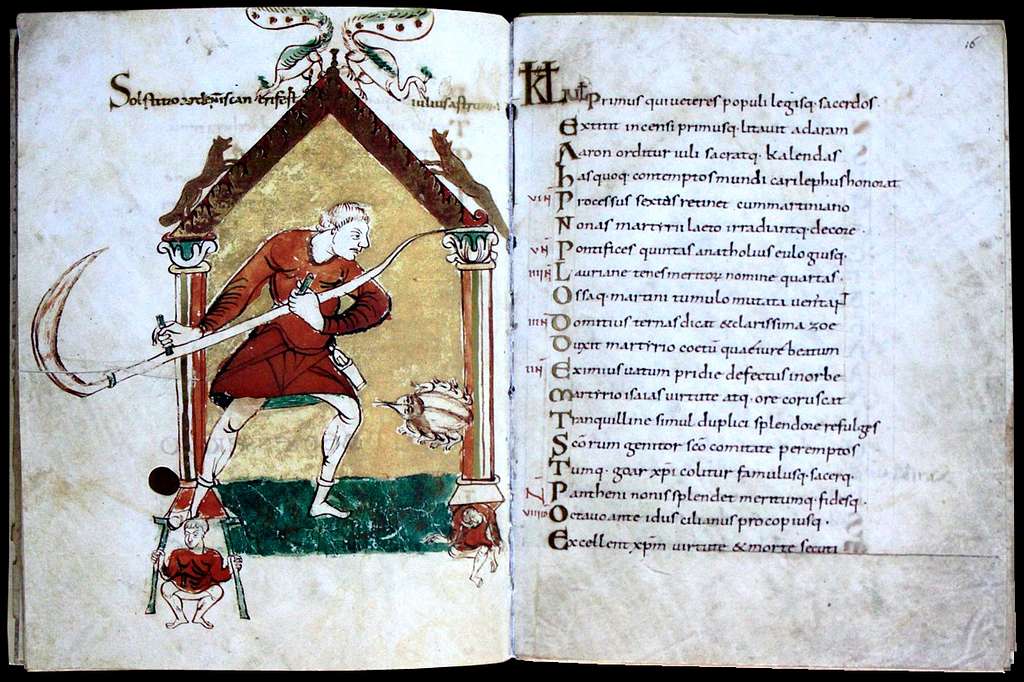 Solstitio ardentis cancri fert iulius austrum
16
KL Iul Primus qui veteres populi legisq· sacerdos·
Extitit incensi primusq· litavit ad aram
Aaron orditur iuli sacratq· kalendas
hasquoq· contemptos mundi carilephus honorat
VI N Processus sextas retinet cum martiniano
Nonas martyrii laeto irradiantq· decore·
V N Pontifices quintas anatholius eulogiusq·
IIII N Lauriane tenes meritor nomine quartas·
Ossaq· martini tumulo mutata
III N Domitius ternas dicat & clarissima zoe
Duxit martyrio coetū quae iure beatum
II N Eximius vatum pridie defectus in orbe
Martyrio isaias virtute atq· ore coruscat
Tranquilline simul duplici splendore refulges
Scōrum genitor scō comitate peremptos
Tumq· goar xp̄i colitur famulusq· sacerq·
N Pantheni nonis splendet meritumq· fidesq·
VIII ID Octavo ante idus cilianus procopiusq·
Excellent xp̄m virtute & morte secuti